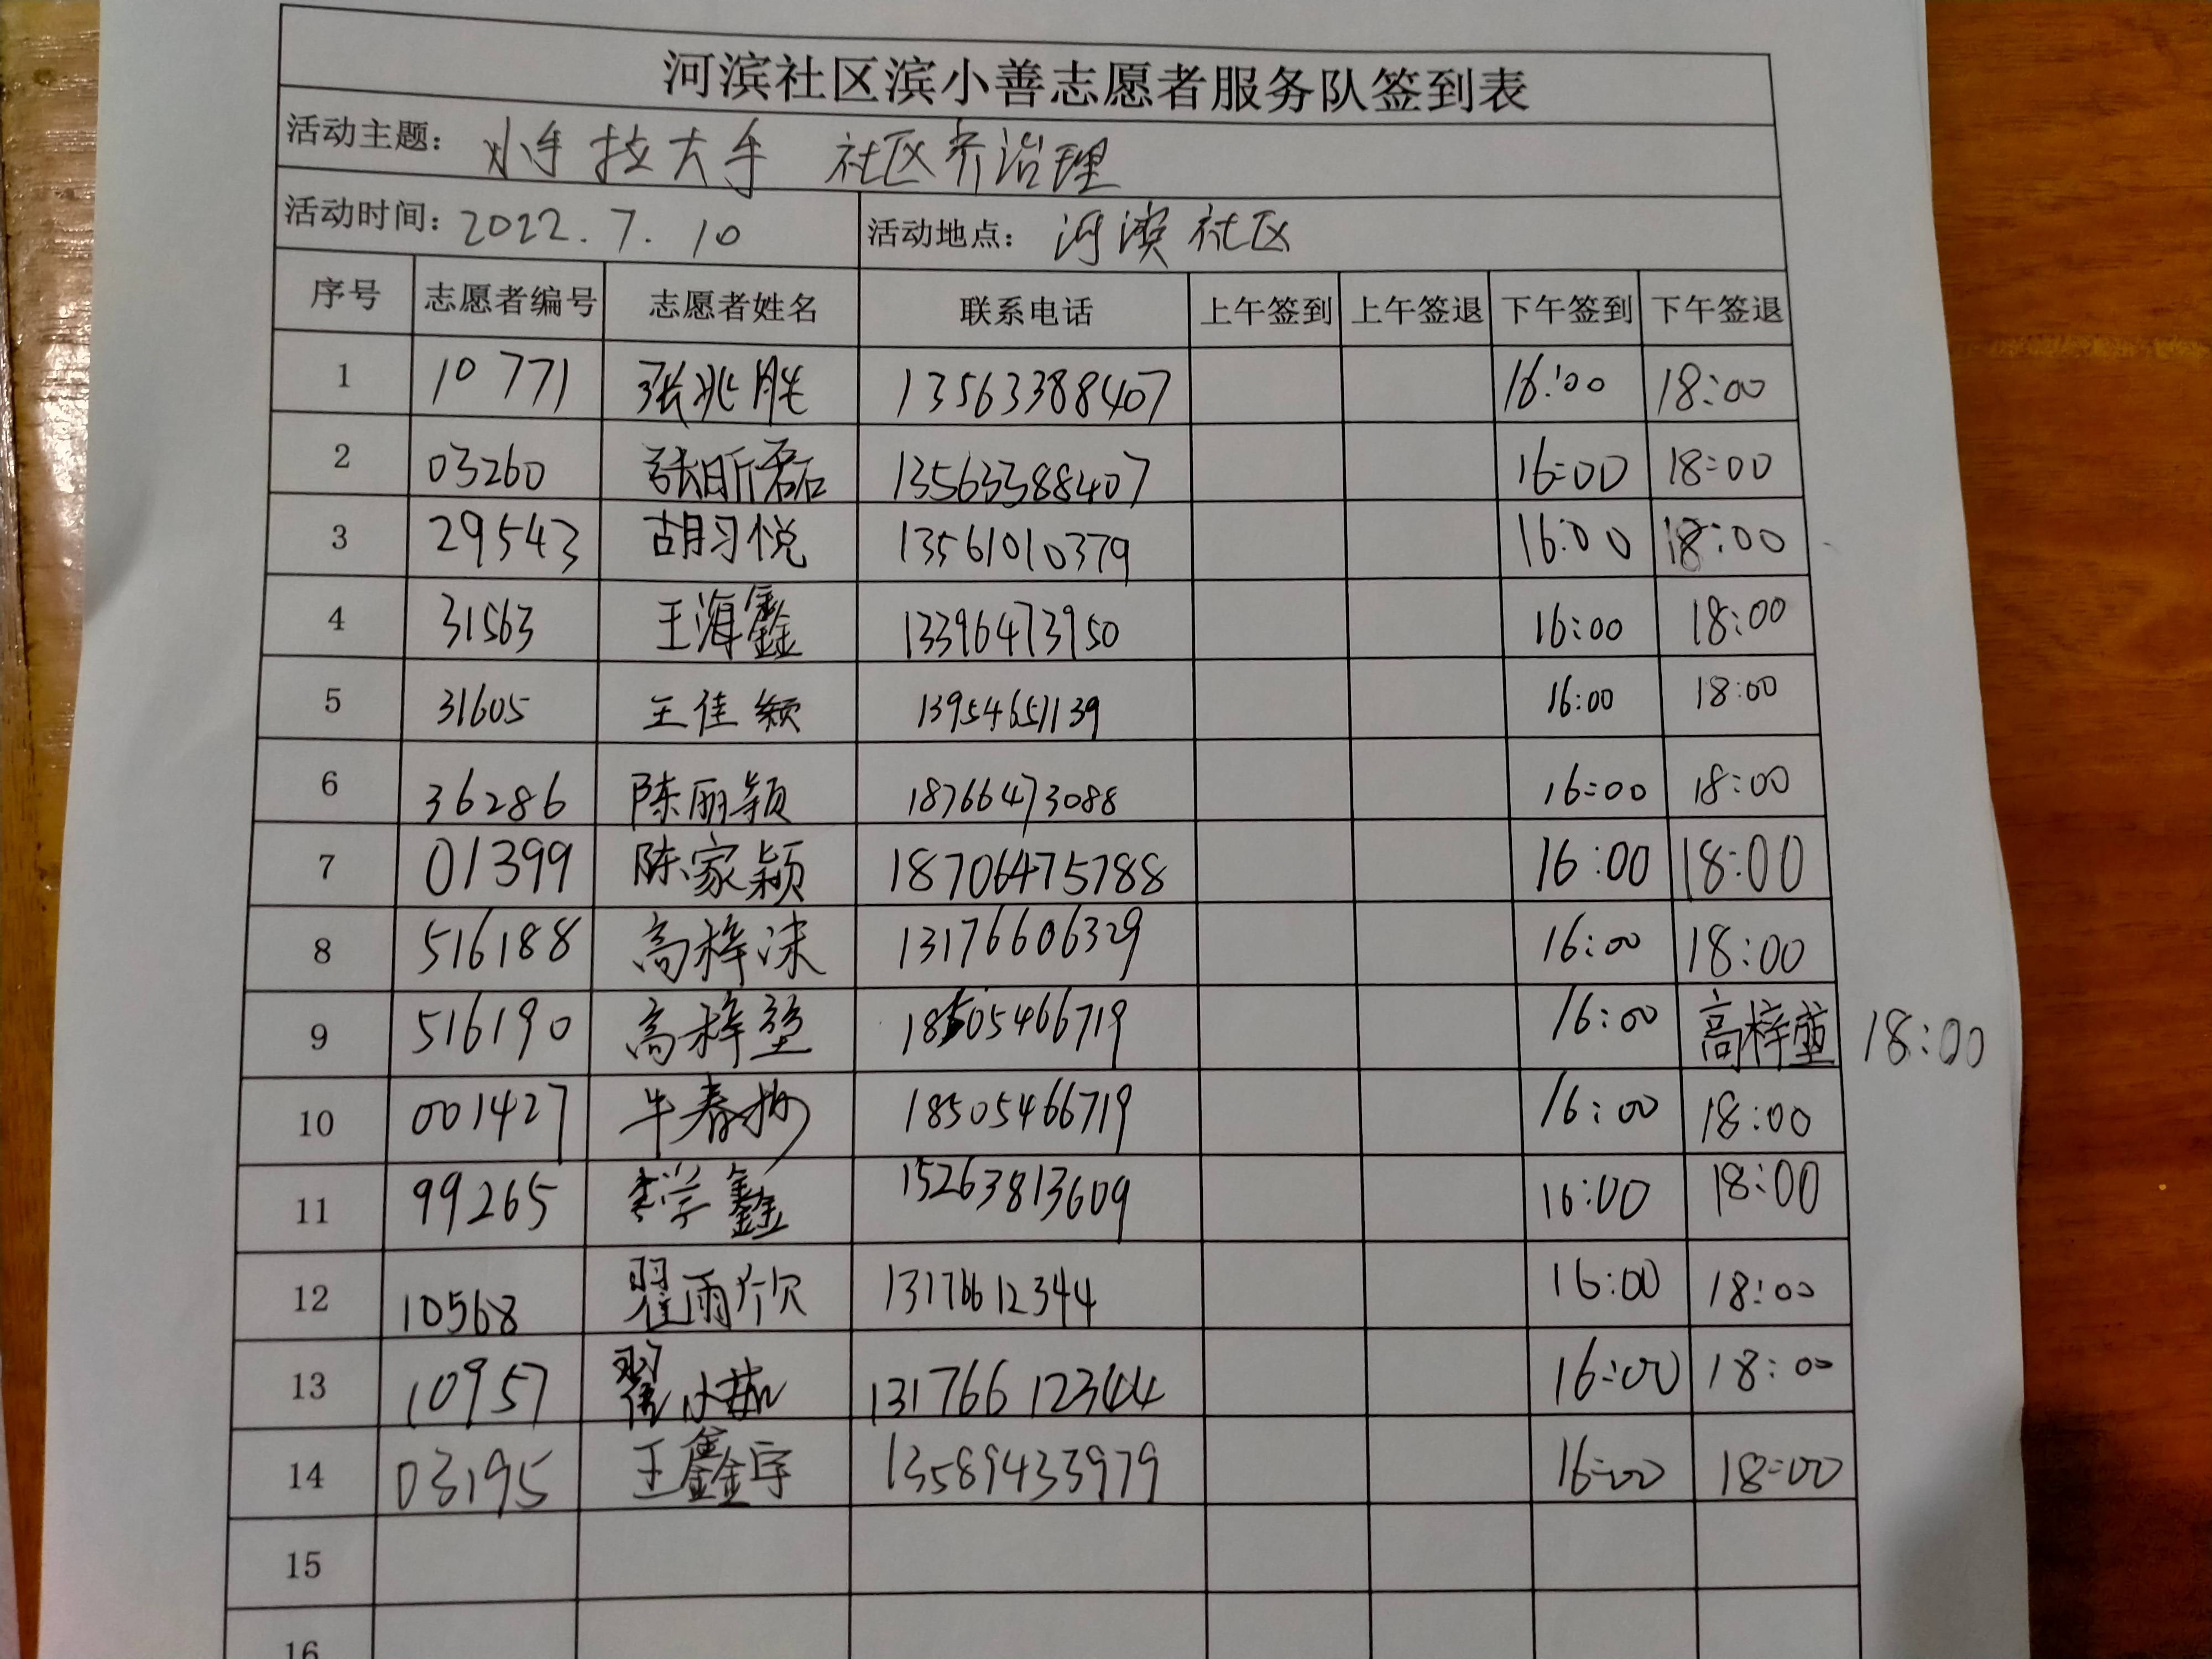 河滨社区滨小善志愿者服务队签到表
活动主题: 小手拉大手 社区齐治理
活动时间: 2022.7.10 活动地点: 河滨社区
序号 志愿者编号 志愿者姓名 联系电话 上午签到 上午签退 下午签到 下午签退
1 10771 张兆胜 13563388407 16:00 18:00
2 03260 张昕磊 13563388407 16:00 18:00
3 29543 胡习悦 13561010379 16:00 18:00
4 31563 王海鑫 13396473950 16:00 18:00
5 31605 王佳颖 13954651139 16:00 18:00
6 36286 陈丽颖 18766473088 16:00 18:00
7 01399 陈家颖 18706475788 16:00 18:00
8 516188 高梓沫 13176606329 16:00 18:00
9 516190 高梓 18505466719 16:00 高梓 18:00
10 001427 牛春 18505466719 16:00 18:00
11 99265 李学鑫 15263813609 16:00 18:00
12 10568 翟雨欣 13176612344 16:00 18:00
13 10957 翟小 13176612344 16:00 18:00
14 03195 王鑫宇 13589433979 16:00 18:00
15
16